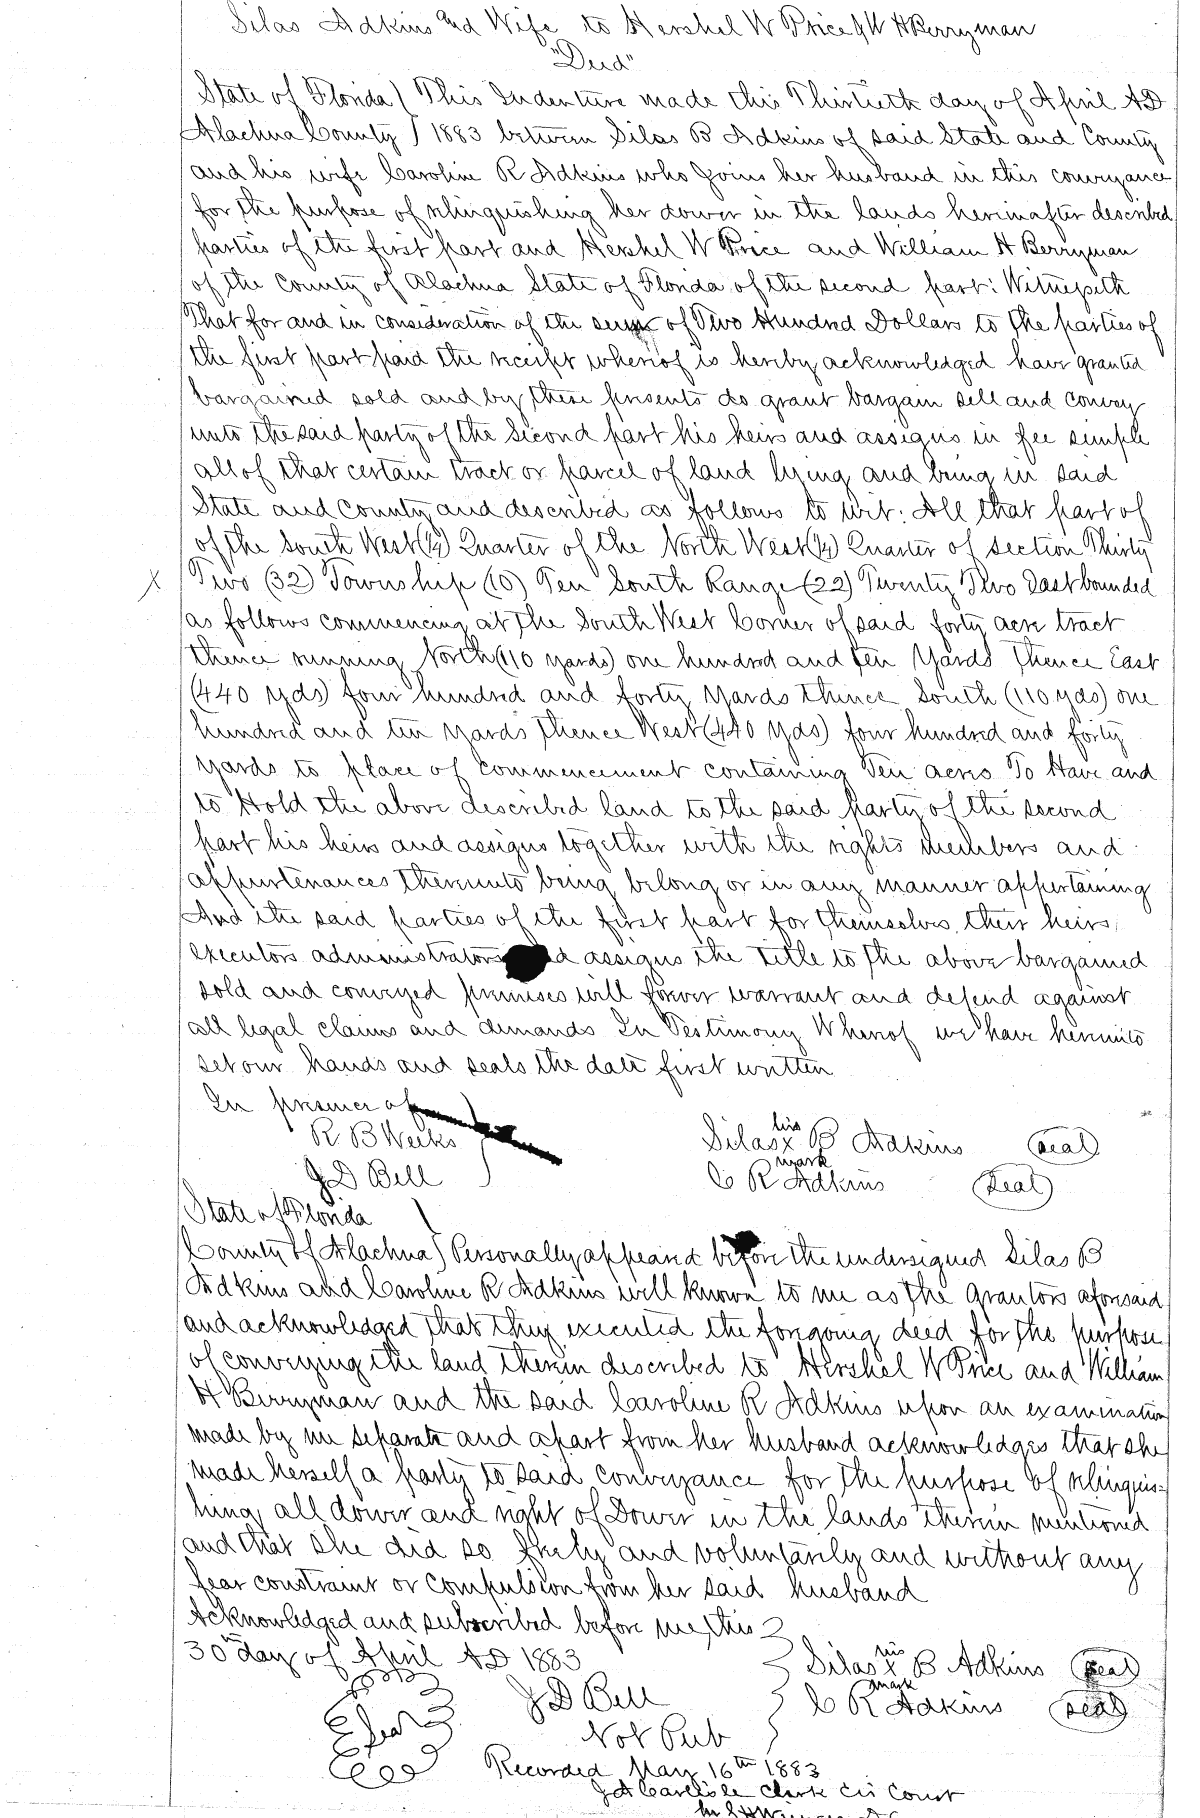 Silas Adkins and Wife to Hershel W Price & W H Berryman
"Deed"
State of Florida ) This Indenture made this Thirtieth day of April AD
Alachua County ) 1883 between Silas B Adkins of said State and County
and his wife Caroline R Adkins who joins her husband in this conveyance
for the purpose of relinquishing her dower in the lands hereinafter described
parties of the first part and Hershel W Price and William H Berryman
of the County of Alachua State of Florida of the second part: Witnesseth
That for and in consideration of the sum of Two Hundred Dollars to the parties of
the first part paid the receipt whereof is hereby acknowledged have granted
bargained sold and by these presents do grant bargain sell and convey
unto the said party of the second part his heirs and assigns in fee simple
all of that certain tract or parcel of land lying and being in said
State and County and described as follows to wit: All that part of
of the South West (¼) Quarter of the North West (¼) Quarter of section Thirty
X Two (32) Township (10) Ten South Range (22) Twenty Two East bounded
as follows commencing at the South West Corner of said forty acre tract
thence running North (110 yards) one hundred and ten Yards Thence East
(440 yds) four hundred and forty Yards thence South (110 yds) one
hundred and ten Yards thence West (440 Yds) four hundred and forty
Yards to place of commencement containing Ten acres To Have and
to Hold the above described land to the said party of the second
part his heirs and assigns together with the rights members and
appurtenances thereunto being belong or in any manner appertaining
And the said parties of the first part for themselves their heirs,
executors administrators d assigns the title to the above bargained
sold and conveyed premises will forever warrant and defend against
all legal claims and demands In Testimony Whereof we have hereunto
set our hands and seals the date first written
In presence of
R B Weeks
J D Bell
his
Silas x B Adkins (Seal)
mark
C R Adkins (Seal)
State of Florida )
County of Alachua ) Personally appeared before the undersigned Silas B
Adkins and Caroline R Adkins well known to me as the Grantors aforesaid
and acknowledged that they executed the foregoing deed for the purpose
of conveying the land therein described to Hershel W Price and William
H Berryman and the said Caroline R Adkins upon an examination
made by me separate and apart from her husband acknowledges that she
made herself a party to said conveyance for the purpose of relinquis=
hing all dower and right of Dower in the lands therein mentioned
and that she did so freely and voluntarily and without any
fear constraint or compulsion from her said husband
Acknowledged and subscribed before me this
30th day of April AD 1883
his
Silas x B Adkins (Seal)
mark
C R Adkins (Seal)
Seal
J D Bell
Not Pub
Recorded May 16th 1883
J A Carlisle Clerk Cir Court